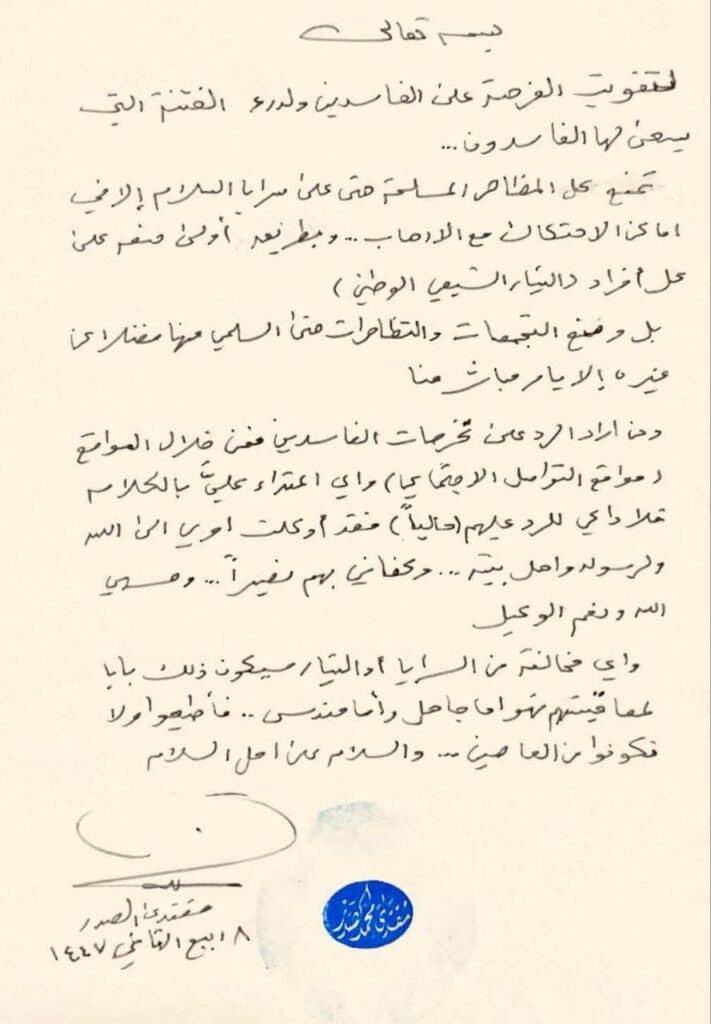 بسمه تعالى
لتفويت الفرصة على الفاسدين ولدرء الفتنة التي
يسعى لها الفاسدون...
تمنع كل المظاهر المسلحة حتى على سرايا السلام إلا في
اماكن الاحتكاك مع الارهاب .. وبطريقه أولى منعه على
كل أفراد (التيار الشيعي الوطني)
بل ومنع التجمعات والتظاهرات حتى السلمي منها فضلا عن
غيره إلا بأمر مباشر منا
ومن اراد الرد على تخرصات الفاسدين فمن خلال المواقع
(مواقع التواصل الاجتماعي) واي اعتداء عليَّ بالكلام
فلا داعي للرد عليهم (حالياً) فقد أوكلت امري الى الله
ولرسوله واهل بيته ... وكفاني بهم نصيراً ... وحسبي
الله ونعم الوكيل
واي مخالفة من السرايا أو التيار سيكون ذلك بابا
لمعاقبتهم فهو اما جاهل وأما مندس .. فأطيعوا ولا
تكونوا من العاصين ... والسلام على اهل السلام
مقتدى الصدر
٨ ربيع الثاني ١٤٤٧
مقتدى محمد الصدر